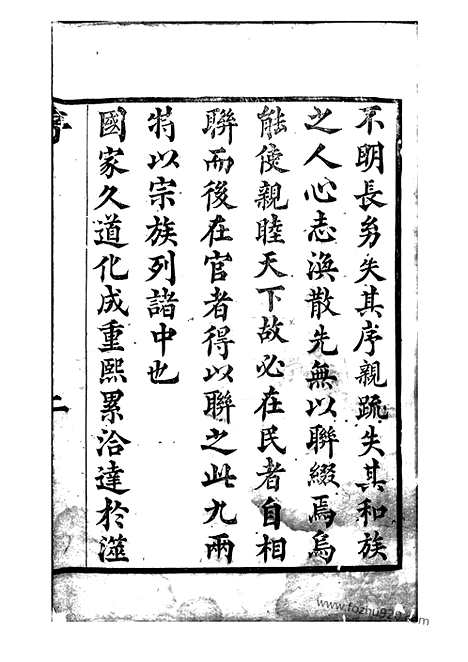 不明長㓜失其序親䟽失其和族
之人心志渙散先無以聯綴焉烏
能使親睦天下故必在民者自相
聯而後在官者得以聯之此九兩
特以宗族列諸中也
國家久道化成重熙累洽達於㵗
二
www.fozhu920.com